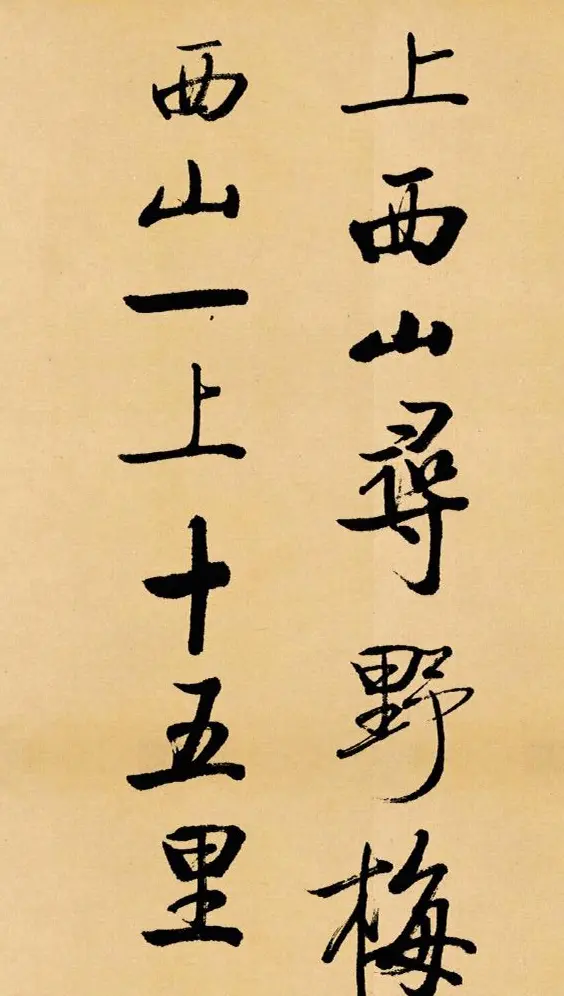 上西山尋野梅
西山一上十五里